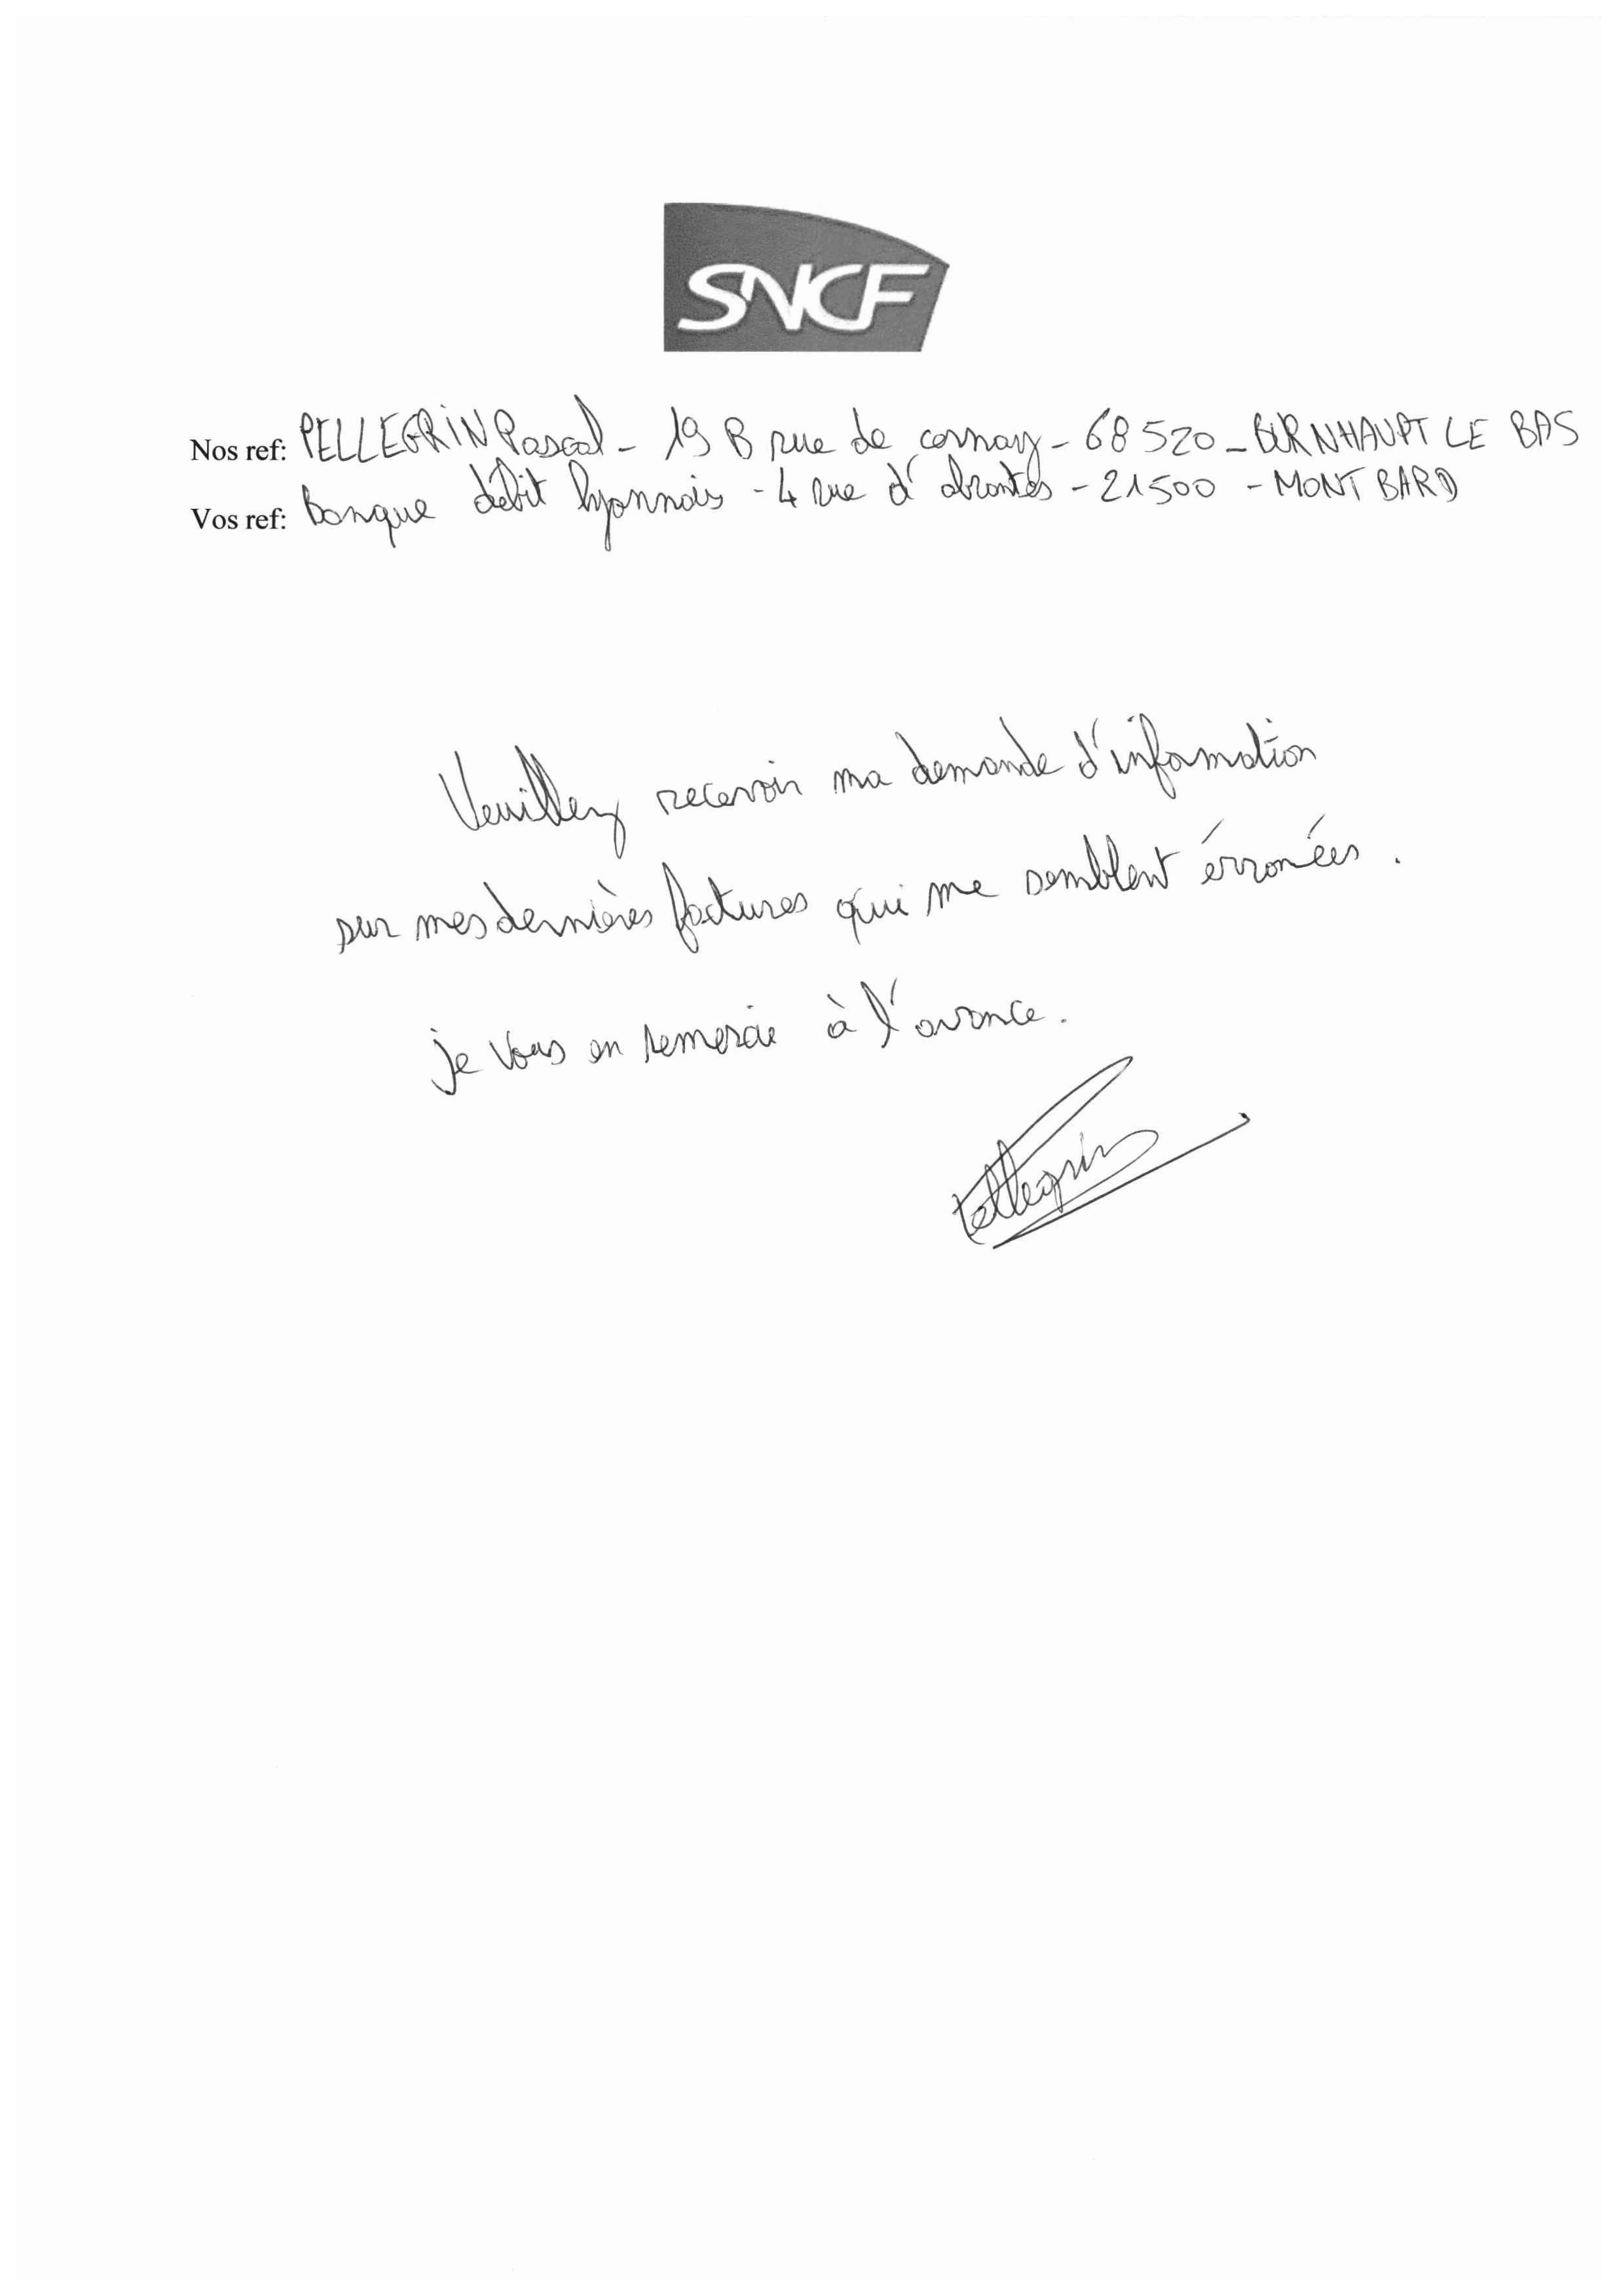 SNCF
Nos ref: PELLEGRIN Pascal - 19 B rue de cernay - 68 520 - BURNHAUPT LE BAS
Vos ref: Banque débit lyonnais - 4 rue d'abrantès - 21500 - MONTBARD
Veuillez recevoir ma demande d'information
sur mes dernières factures qui me semblent érronées.
je vous en remercie à l'avance.
Pellegrin